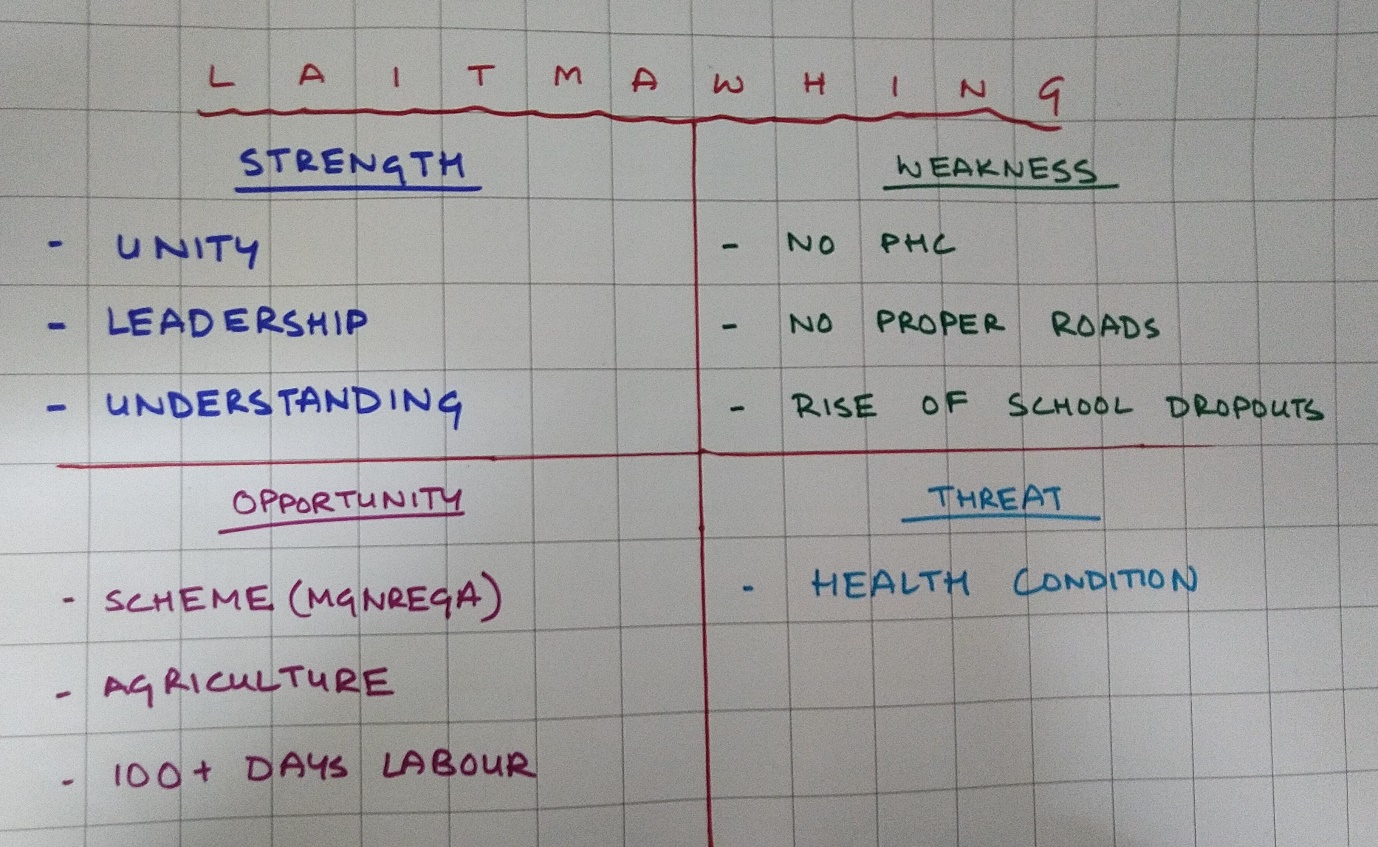 LAITMAWHING
STRENGTH
- UNITY
- LEADERSHIP
- UNDERSTANDING
WEAKNESS
- NO PHC
- NO PROPER ROADS
- RISE OF SCHOOL DROPOUTS
OPPORTUNITY
- SCHEME (MGNREGA)
- AGRICULTURE
- 100+ DAYS LABOUR
THREAT
- HEALTH CONDITION